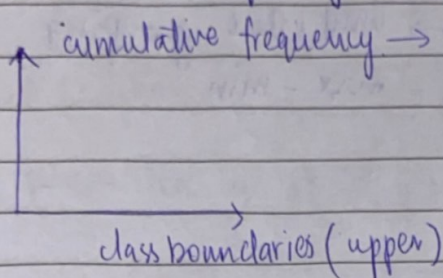 cumulative frequency →
class boundaries (upper)